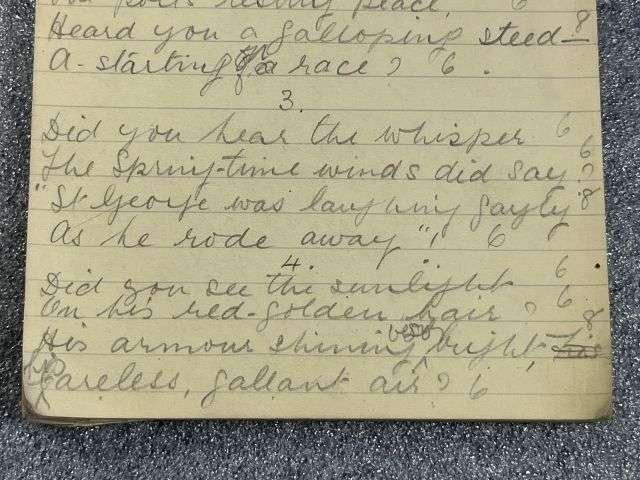 resting peace, 6
Heard you a galloping steed— 8
A-starting a race? 6.
3.
Did you hear the whisper 6
The Spring-time winds did say? 6
"St George was laughing gayly 8
As he rode away"! 6
4.
Did you see the sunlight 6
On his red-golden hair? 6
His armour shining very bright, 8
Careless, gallant air? 6